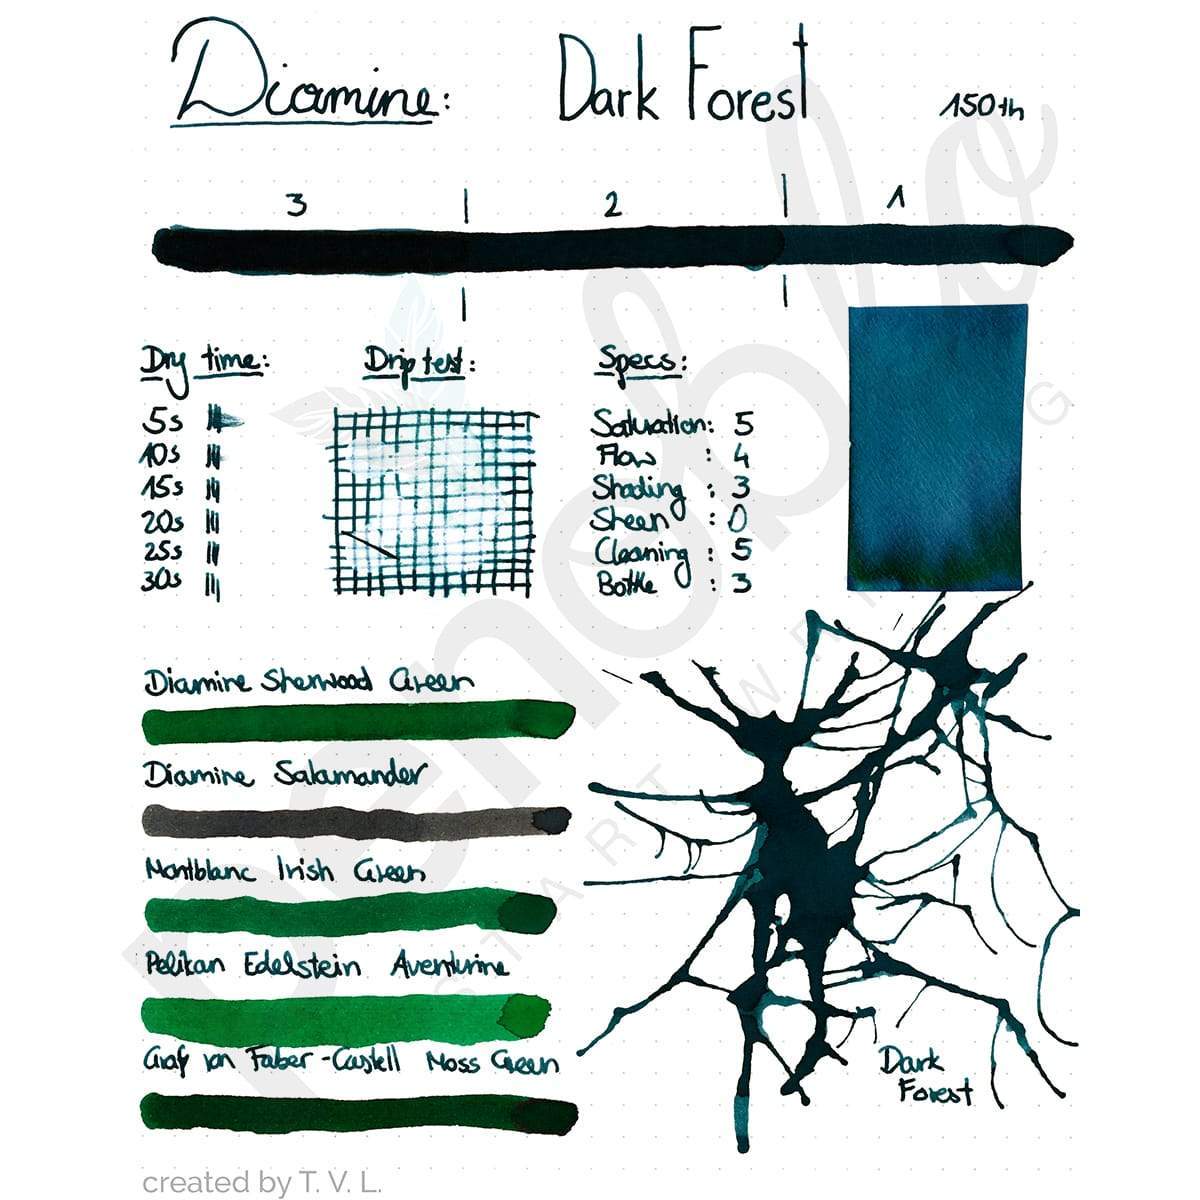 Diamine: Dark Forest 150th
3 2 1
Dry time: Drip test: Specs:
5s
10s
15s
20s
25s
30s
Saturation: 5
Flow : 4
Shading : 3
Sheen : 0
Cleaning : 5
Bottle : 3
Diamine Sherwood Green
Diamine Salamander
Montblanc Irish Green
Pelikan Edelstein Aventurine
Graf von Faber-Castell Moss Green
Dark
Forest
penoblo
START WRITING
created by T. V. L.